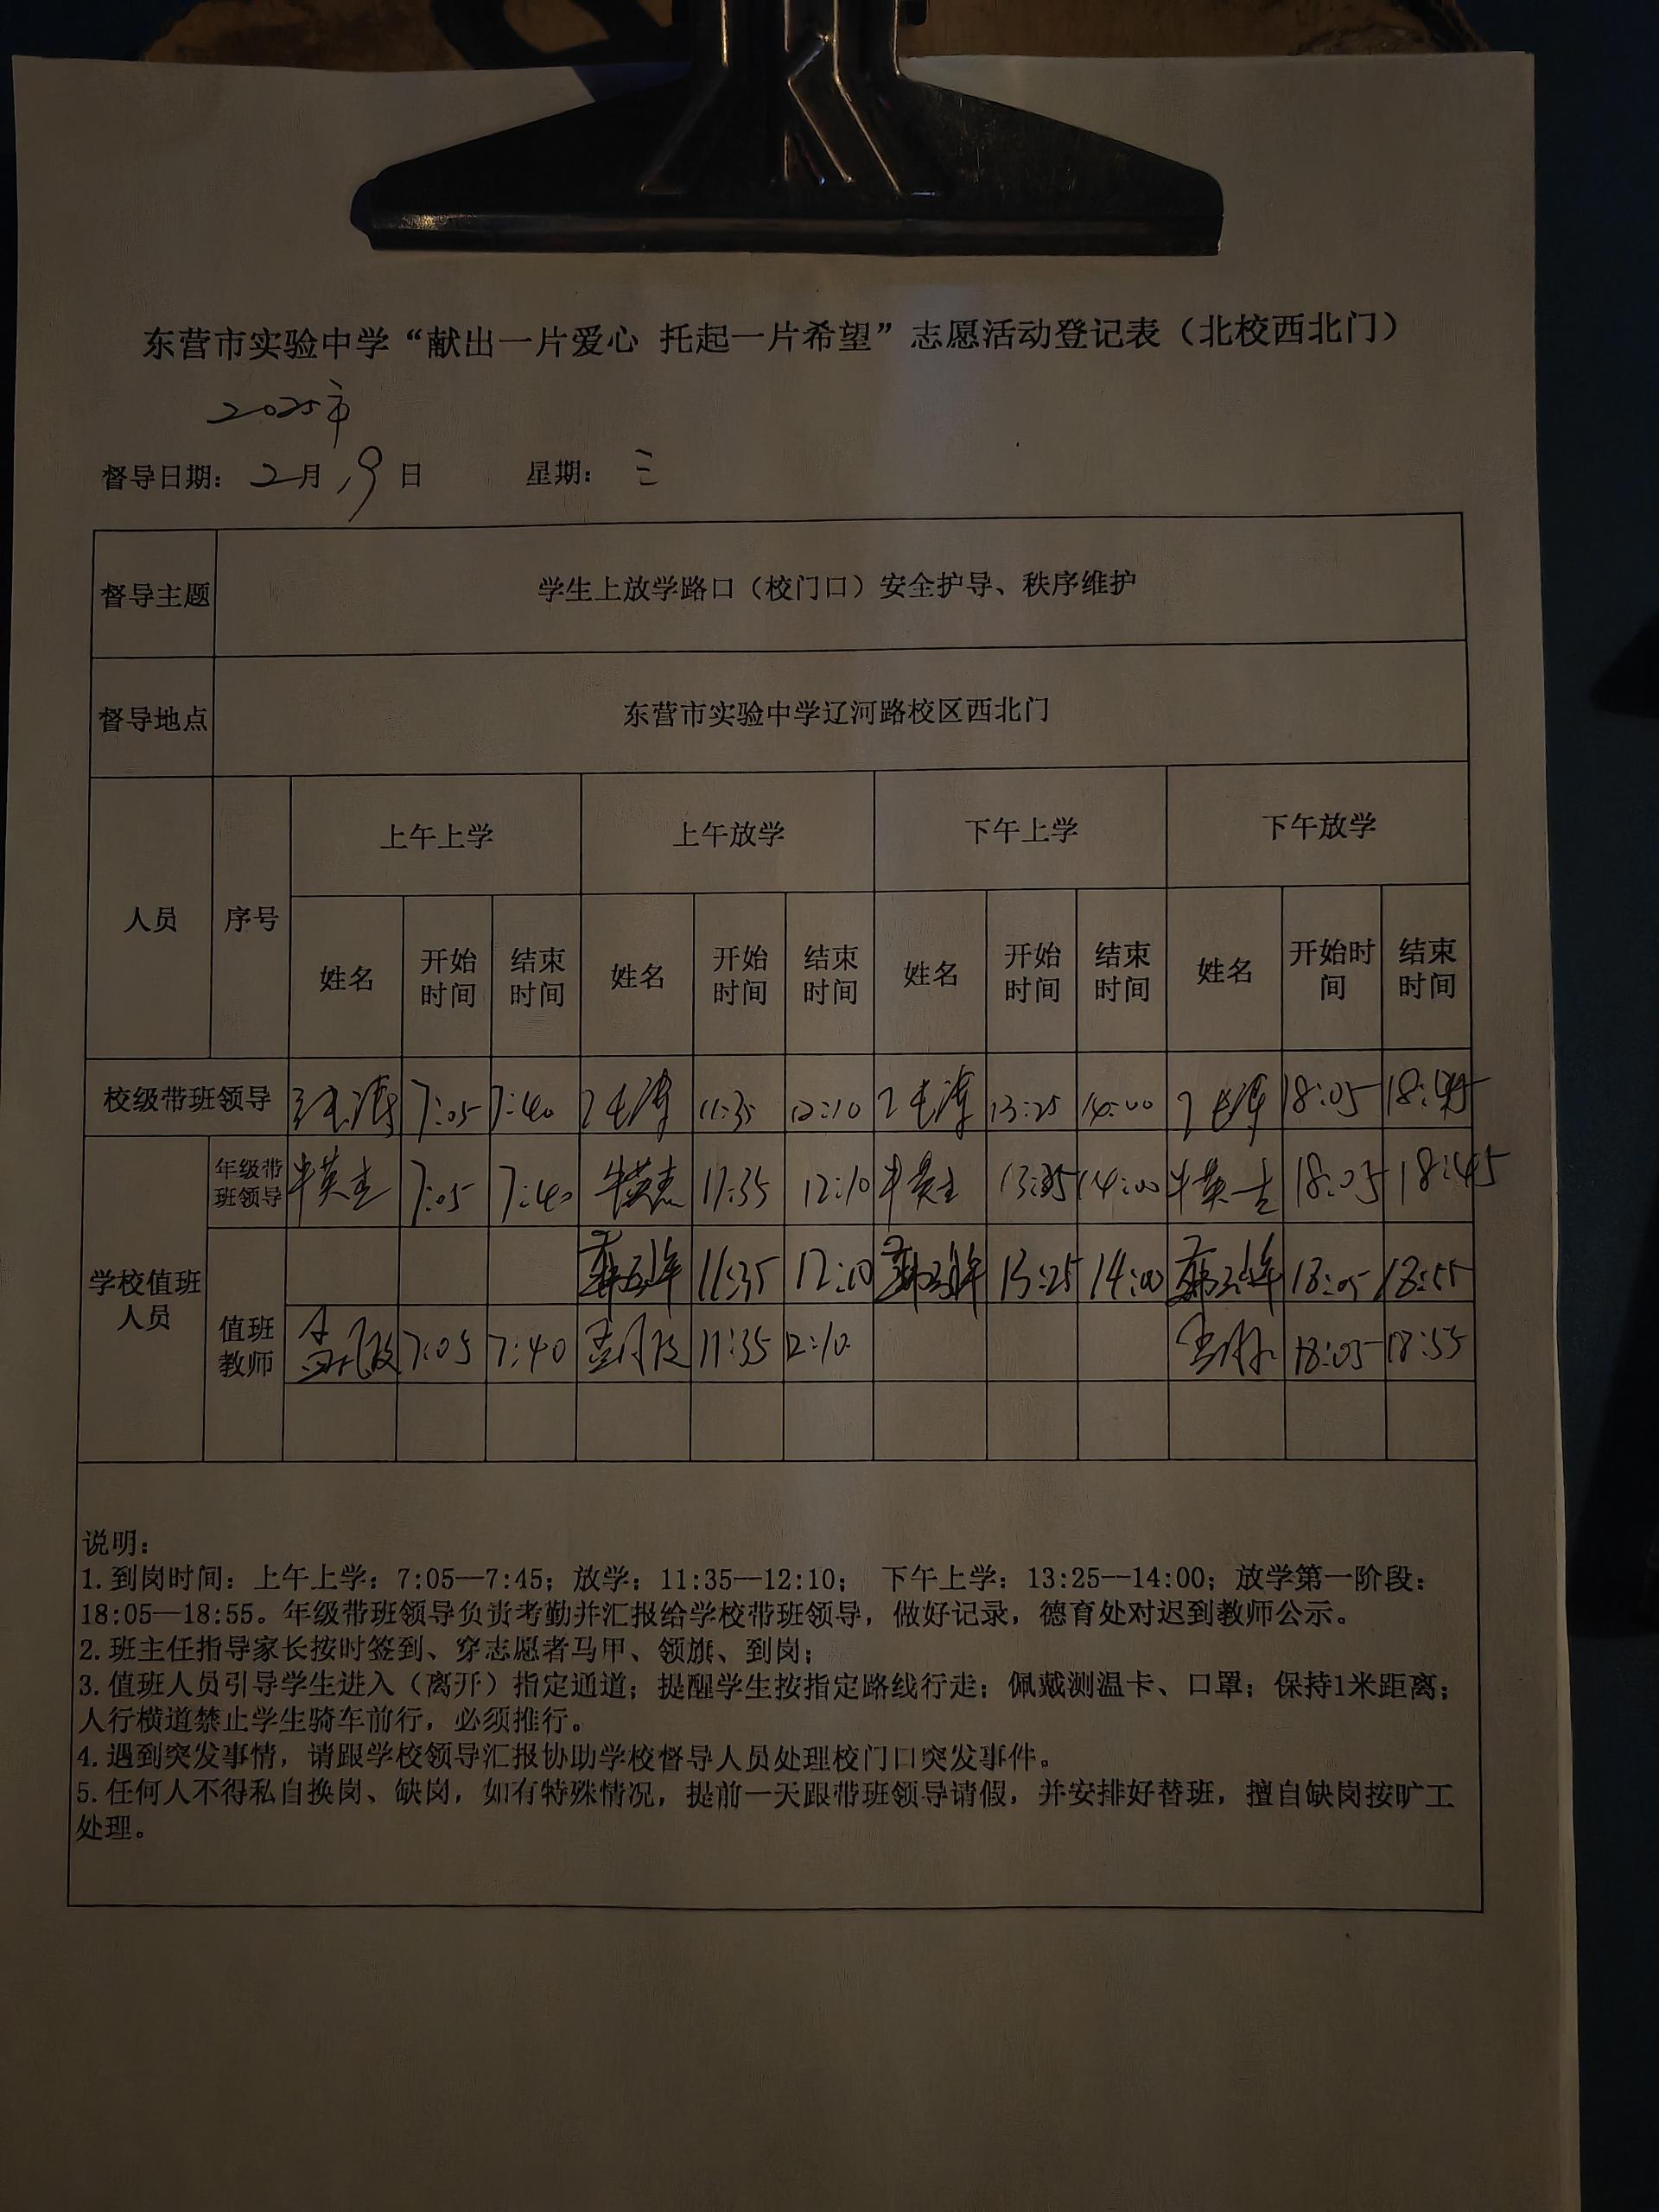 东营市实验中学“献出一片爱心 托起一片希望”志愿活动登记表（北校西北门）
2025年
督导日期：2月19日 星期：三
督导主题 学生上放学路口（校门口）安全护导、秩序维护
督导地点 东营市实验中学辽河路校区西北门
人员 序号 上午上学 上午放学 下午上学 下午放学
姓名 开始时间 结束时间 姓名 开始时间 结束时间 姓名 开始时间 结束时间 姓名 开始时间 结束时间
校级带班领导 7:05 7:40 11:35 12:10 13:25 14:00 18:05 18:45
学校值班人员 年级带班领导 牛英杰 7:05 7:40 牛英杰 11:35 12:10 牛英杰 13:25 14:00 牛英杰 18:05 18:45
值班教师 11:35 12:10 13:25 14:00 18:05 18:55
7:05 7:40 11:35 12:10 18:05 18:55
说明：
1.到岗时间：上午上学：7:05—7:45；放学：11:35—12:10； 下午上学：13:25—14:00；放学第一阶段：
18:05—18:55。年级带班领导负责考勤并汇报给学校带班领导，做好记录，德育处对迟到教师公示。
2.班主任指导家长按时签到、穿志愿者马甲、领旗、到岗；
3.值班人员引导学生进入（离开）指定通道；提醒学生按指定路线行走；佩戴测温卡、口罩；保持1米距离；
人行横道禁止学生骑车前行，必须推行。
4.遇到突发事情，请跟学校领导汇报协助学校督导人员处理校门口突发事件。
5.任何人不得私自换岗、缺岗，如有特殊情况，提前一天跟带班领导请假，并安排好替班，擅自缺岗按旷工
处理。